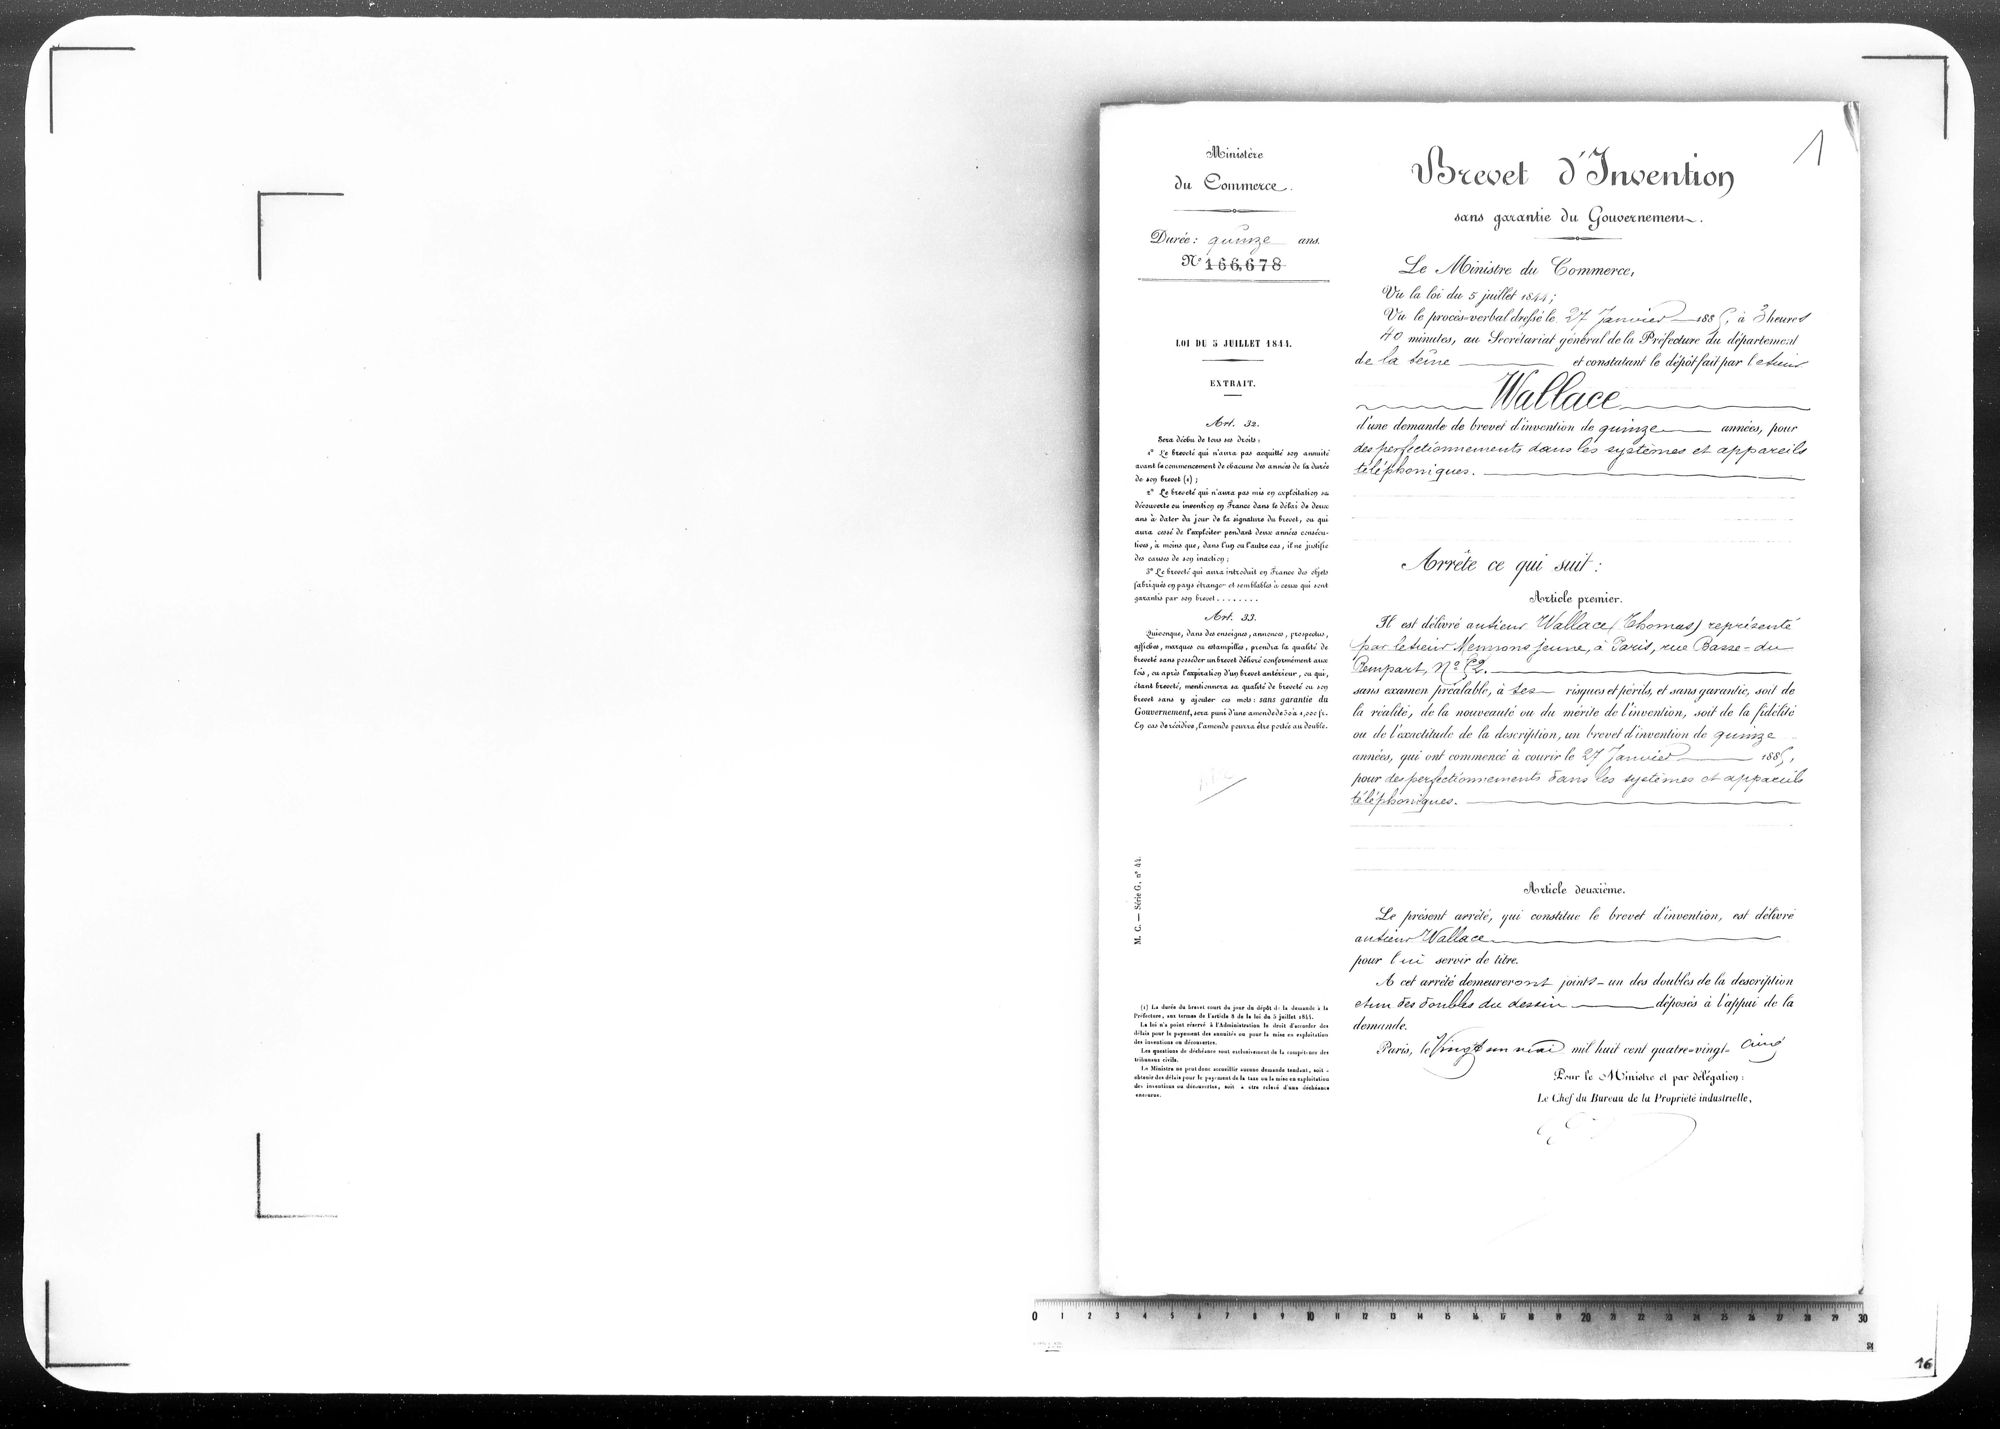 1
Ministère
du Commerce.
Durée : quinze ans.
N° 166,678
LOI DU 5 JUILLET 1844.
EXTRAIT.
Art. 32.
Sera déchu de tous ses droits :
1° Le breveté qui n'aura pas acquitté son annuité
avant le commencement de chacune des années de la durée
de son brevet (1) ;
2° Le breveté qui n'aura pas mis en exploitation sa
découverte ou invention en France dans le délai de deux
ans à dater du jour de la signature du brevet, ou qui
aura cessé de l'exploiter pendant deux années consécu-
tives, à moins que, dans l'un ou l'autre cas, il ne justifie
des causes de son inaction ;
3° Le breveté qui aura introduit en France des objets
fabriqués en pays étranger et semblables à ceux qui sont
garantis par son brevet . . . . . . . .
Art. 33.
Quiconque, dans des enseignes, annonces, prospectus,
affiches, marques ou estampilles, prendra la qualité de
breveté sans posséder un brevet délivré conformément aux
lois, ou après l'expiration d'un brevet antérieur, ou qui,
étant breveté, mentionnera sa qualité de breveté ou son
brevet sans y ajouter ces mots : sans garantie du
Gouvernement, sera puni d'une amende de 50 à 1,000 fr.
En cas de récidive, l'amende pourra être portée au double.
M. C. — Série G, n° 44.
(1) La durée du brevet court du jour du dépôt de la demande à la
Préfecture, aux termes de l'article 8 de la loi du 5 juillet 1844.
La loi n'a point réservé à l'Administration le droit d'accorder des
délais pour le payement des annuités ou pour la mise en exploitation
des inventions ou découvertes.
Les questions de déchéance sont exclusivement de la compétence des
tribunaux civils.
Le Ministre ne peut donc accueillir aucune demande tendant, soit à
obtenir des délais pour le payement de la taxe ou la mise en exploitation
des inventions ou découvertes, soit à être relevé d'une déchéance
encourue.
Brevet d'Invention
sans garantie du Gouvernement.
Le Ministre du Commerce,
Vu la loi du 5 juillet 1844 ;
Vu le procès-verbal dressé le 27 Janvier 1885, à 3 heures
40 minutes, au Secrétariat général de la Préfecture du département
de la Seine et constatant le dépôt fait par le sieur
Wallace
d'une demande de brevet d'invention de quinze années, pour
des perfectionnements dans les systèmes et appareils
téléphoniques.
Arrête ce qui suit :
Article premier.
Il est délivré au sieur Wallace (Thomas) représenté
par le sieur Mennons jeune, à Paris, rue Basse-du
Rempart, N° 52.
sans examen préalable, à ses risques et périls, et sans garantie, soit de
la réalité, de la nouveauté ou du mérite de l'invention, soit de la fidélité
ou de l'exactitude de la description, un brevet d'invention de quinze
années, qui ont commencé à courir le 27 Janvier 1885,
pour des perfectionnements dans les systèmes et appareils
téléphoniques.
Article deuxième.
Le présent arrêté, qui constitue le brevet d'invention, est délivré
au sieur Wallace
pour lui servir de titre.
A cet arrêté demeureront joints un des doubles de la description
et un des doubles du dessin déposés à l'appui de la
demande.
Paris, le Vingt un mai mil huit cent quatre-vingt-cinq
Pour le Ministre et par délégation :
Le Chef du Bureau de la Propriété industrielle,
0 1 2 3 4 5 6 7 8 9 10 11 12 13 14 15 16 17 18 19 20 21 22 23 24 25 26 27 28 29 30
16